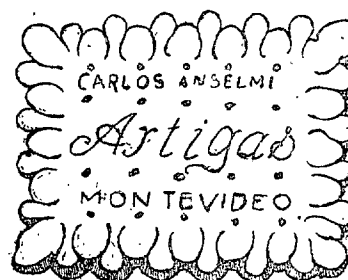 CARLOS ANSELMI
Artigas
MONTEVIDEO